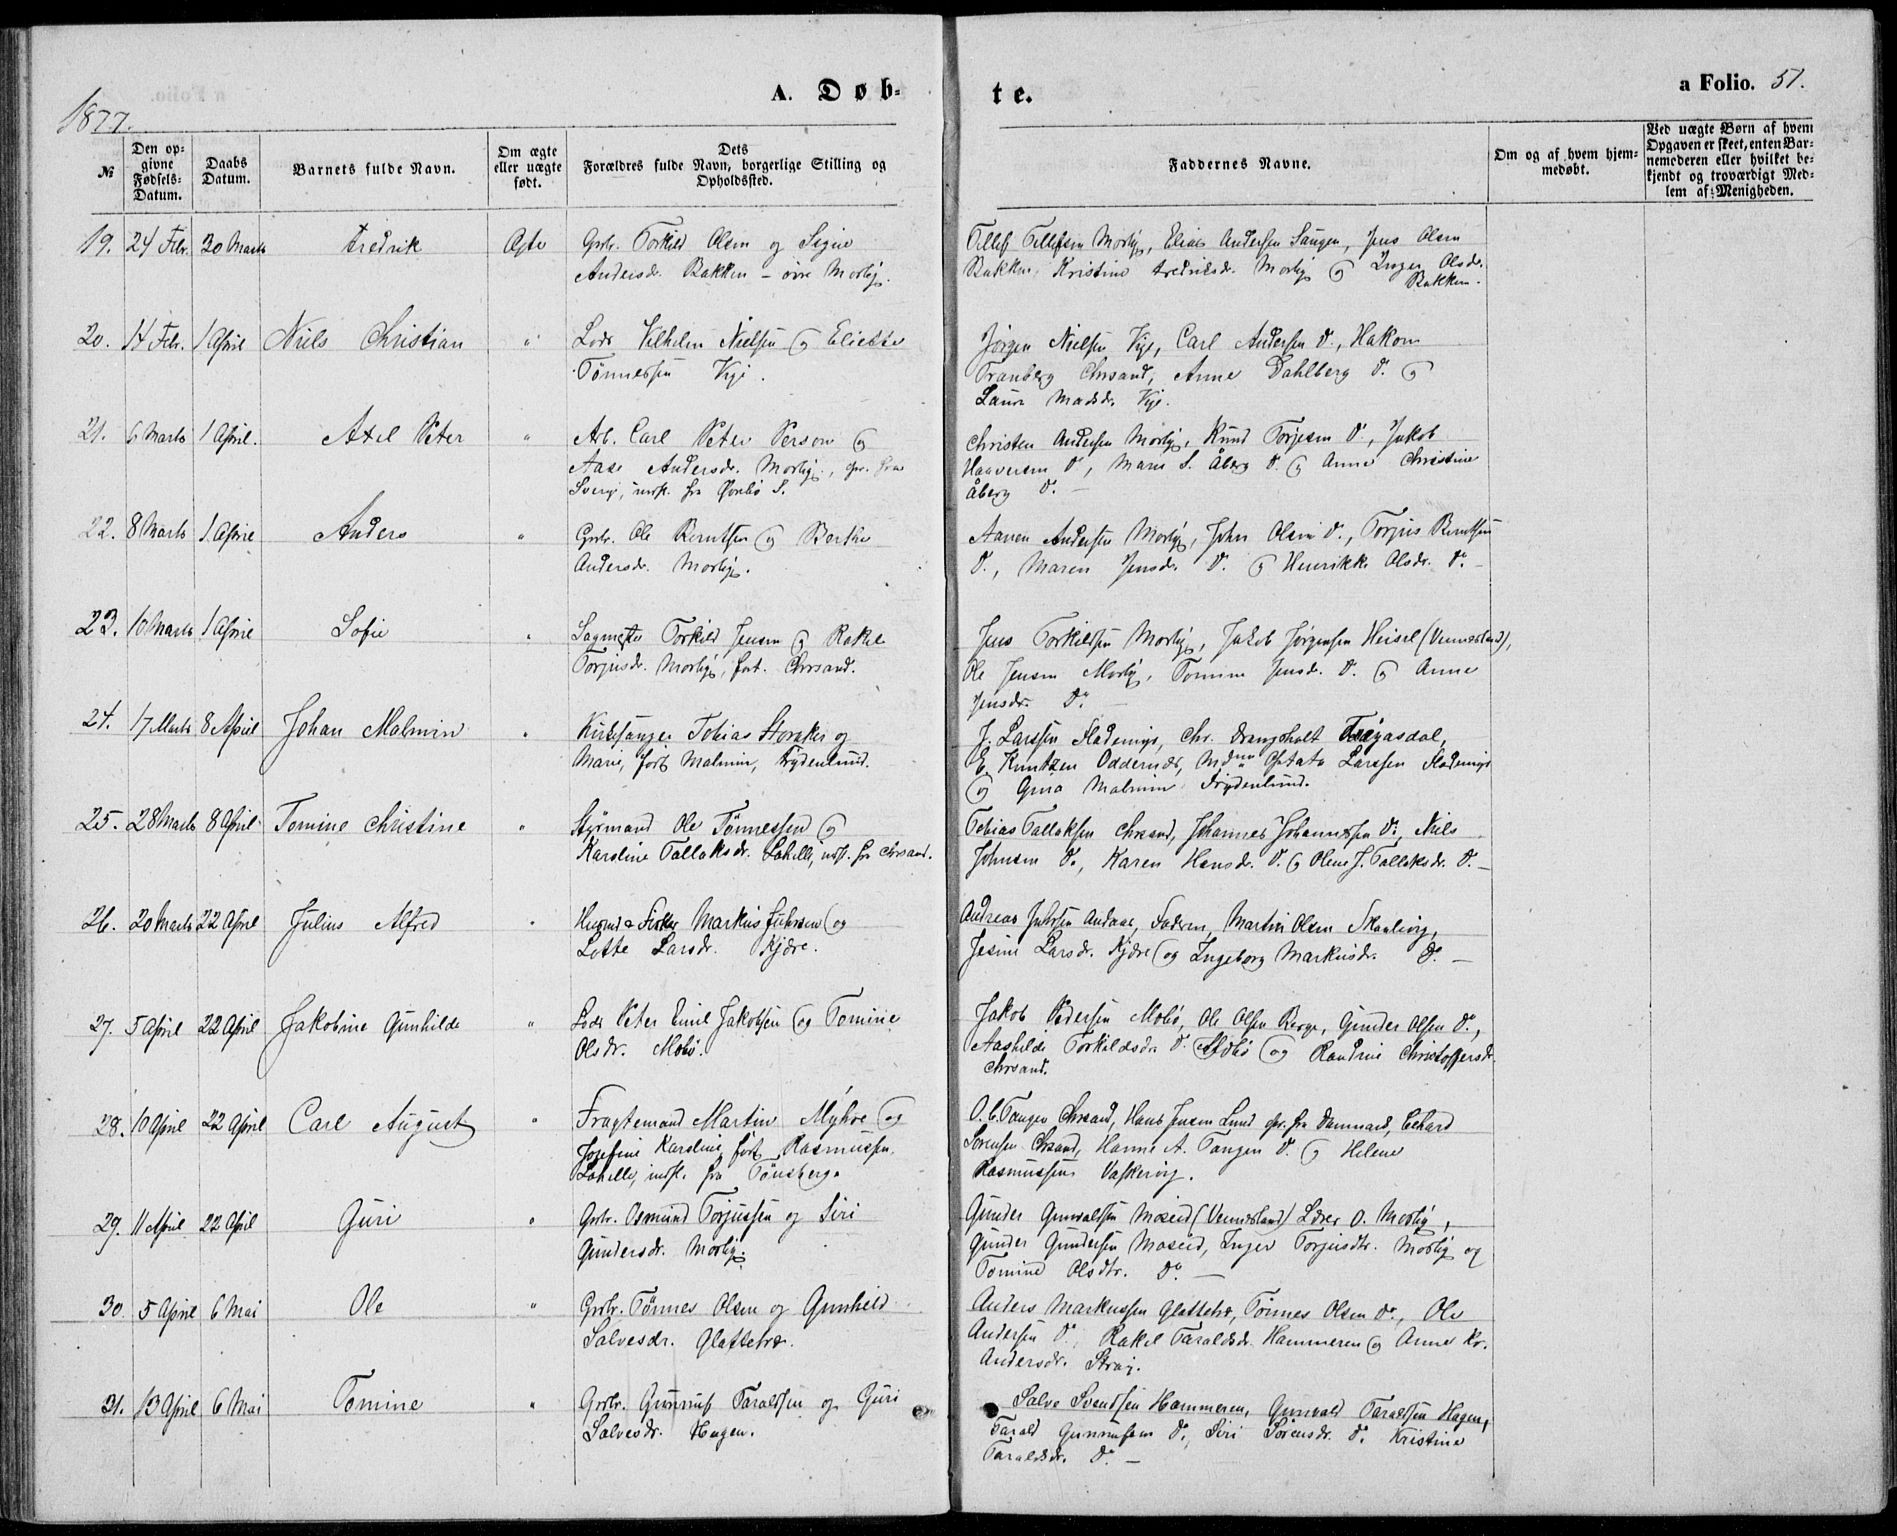 1877.
A. Døb-
te.
a Folio. 51.
№
Den opgivne Fødsels-Datum.
Daabs Datum.
Barnets fulde Navn.
Om ægte eller uægte født.
Dets Forældres fulde Navn, borgerlige Stilling og Opholdssted.
Faddernes Navne.
Om og af hvem hjemmedøbt.
Ved uægte Børn af hvem Opgaven er skeet, enten Barnemoderen eller hvilket bekjendt og troværdigt Medlem af Menigheden.
19. 24 Febr. 30 Marts Fredrik Ægte Grbr. Torkild Olsen og Signe
Andersdr. Bakken - øvre Mosby.
Tellef Tellefsen Mosby, Elias Andersen Saugen, Jens Olsen
Bakken, Kristine Fredriksdr. Mosby og Inger Olsdr.
Bakken.
20. 14 Febr. 1 April Niels Christian " Lods Vilhelm Nielsen og Eliette
Tønnessen Vige.
Jørgen Nielsen Vige, Carl Andersen do., Hakon
Tranberg Chrsand, Anne Dahlberg do. og
Laura Madsdr. Vige.
21. 6 Marts 1 April. Axel Peter " Arb. Carl Peter Person og
Aase Andersdr. Mosby,
Sverig, indfl. fra
Christen Andersen Mosby, Knud Torjesen do, Jakob
Haaversen do, Maria S. Åberg do. og Anne Christine
Åberg do. -
22. 8 Marts 1 April Anders " Grbr. Ole Berntsen og Berthe
Andersdr. Mosby.
Aanen Andersen Mosby, John Olsen do., Torjus Berntsen
do., Maren Jensdr. do. og Henrikke Olsdr. do. -
23. 10 Marts 1 April Sofie " Sagmester Torkild Jensen og Rakel
Torjusdr. Mosby, fort. Chrsand.
Jens Torkildsen Mosby, Jakob Jørgensen Heisel (Vennesland),
Ole Jensen Mosby, Tomine Jensdr. do. og Anne
Jensdr. do. -
24. 17 Marts 8 April Johan Malmin " Kirkesanger Tobias Storaker og
Marie, født Malmin, Frydenlund.
J. Larssen Flademyr, Chr. Drangsholt Torgasdal,
E. Knutzen Oddernes, Larssen Flademyr
og Gina Malmin Frydenlund.
25. 28 Marts 8 April. Tomine Christine " Styrmand Ole Tønnessen og
Karoline Tallaksdr. Lahelle, indfl. fra Chrsand.
Tobias Tallaksen Chrsand, Johannes Johannessen do., Niels
Johnsen do., Karen Hansdr. do. og Olene J. Tallaksdr. do. -
26. 20 Marts 22 April Julius Alfred " Husmd & Fisker Markus Juhrsen og
Lotte Larsdr. Kjære.
Andreas Juhrsen Andaas, Faderen, Martin Olsen Skaalevig,
Jesine Larsdr. Kjære og Ingeborg Markusdr. do. -
27. 5 April 22 April Jakobine Gunhilde " Lods Peter Emil Jakobsen og Tomine
Olsdr. Mebø.
Jakob Pedersen Mebø, Ole Olsen Berge, Gunder Olsen do.,
Aashilde Torkildsdr. do. Mebø og Randine Christoffersdr.
Chrsand.
28. 10 April 22 April Carl August " Fragtemand Martin Myhre og
Josefine Karoline født Rasmussen.
Lahelle, indfl. fra Tønsberg.
O. C. Tangen Chrsand, Hans Jensen Lund opr. fra Danmark, Eehard
Sørensen Chrsand, Hanne A. Tangen do. og Helene
Rasmussen Vaskevig.
29. 11 April 22 April Guri " Grbr. Osmund Torjussen og Siri
Gundersdr. Mosby.
Gunder Gunvaldsen Moseid (Vennesland) Lærer O. Mosby,
Gunder Gundersen Moseid, Inger Torjusdtr. Mosby og
Tomine Olsdtr. do. -
30. 5 April 6 Mai Ole " Grbr. Tønnes Olsen og Gunhild
Salvesdr. Glattetre.
Anders Markussen Glattetre, Tønnes Olsen do., Ole
Andersen do., Rakel Taraldsdr. Hammeren og Anne Kr.
Andersdr. Straj.
31. 13 April 6 Mai Tomine " Grbr. Gunnuf Taraldsen og Guri
Salvesdr. Hagen.
Salve Svendsen Hammeren, Gunvald Taraldsen Hagen,
Tarald Gunnufsen do., Siri Sørensdr. do. Kristine
Taraldsdr. do. -